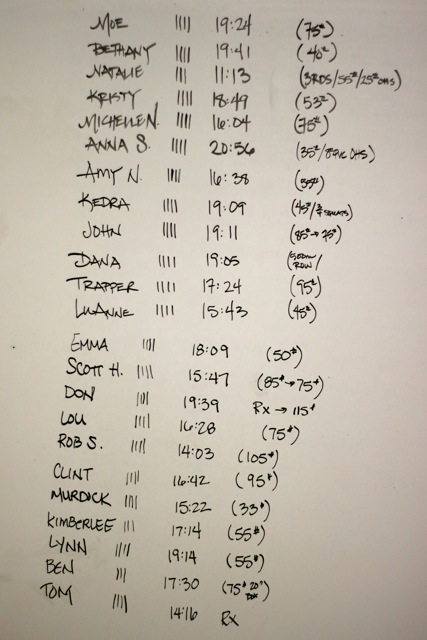 MOE |||| 19:24 (75#)
BETHANY |||| 19:41 (40#)
NATALIE ||| 11:13 (3RDS/55#/25# OHS)
KRISTY |||| 18:49 (53#)
MICHELLE N. |||| 16:04 (75#)
ANNA S. |||| 20:56 (35#/ OHS)
AMY N. |||| 16:38
KEDRA |||| 19:09 (45#/ SQUATS)
JOHN |||| 19:11 (85#→75#)
DANA |||| 19:05 (500M ROW/
TRAPPER |||| 17:24 (95#)
LUANNE |||| 15:43 (45#)
EMMA |||| 18:09 (50#)
SCOTT H. |||| 15:47 (85#→75#)
DON |||| 19:39 RX → 115#
LOU |||| 16:28 (75#)
ROB S. |||| 14:03 (105#)
CLINT |||| 16:42 (95#)
MURDICK |||| 15:22 (33#)
KIMBERLEE ||| 17:14 (55#)
LYNN |||| 19:14 (55#)
BEN ||| 17:30 (75# 20" BOX)
TOM |||| 14:16 RX